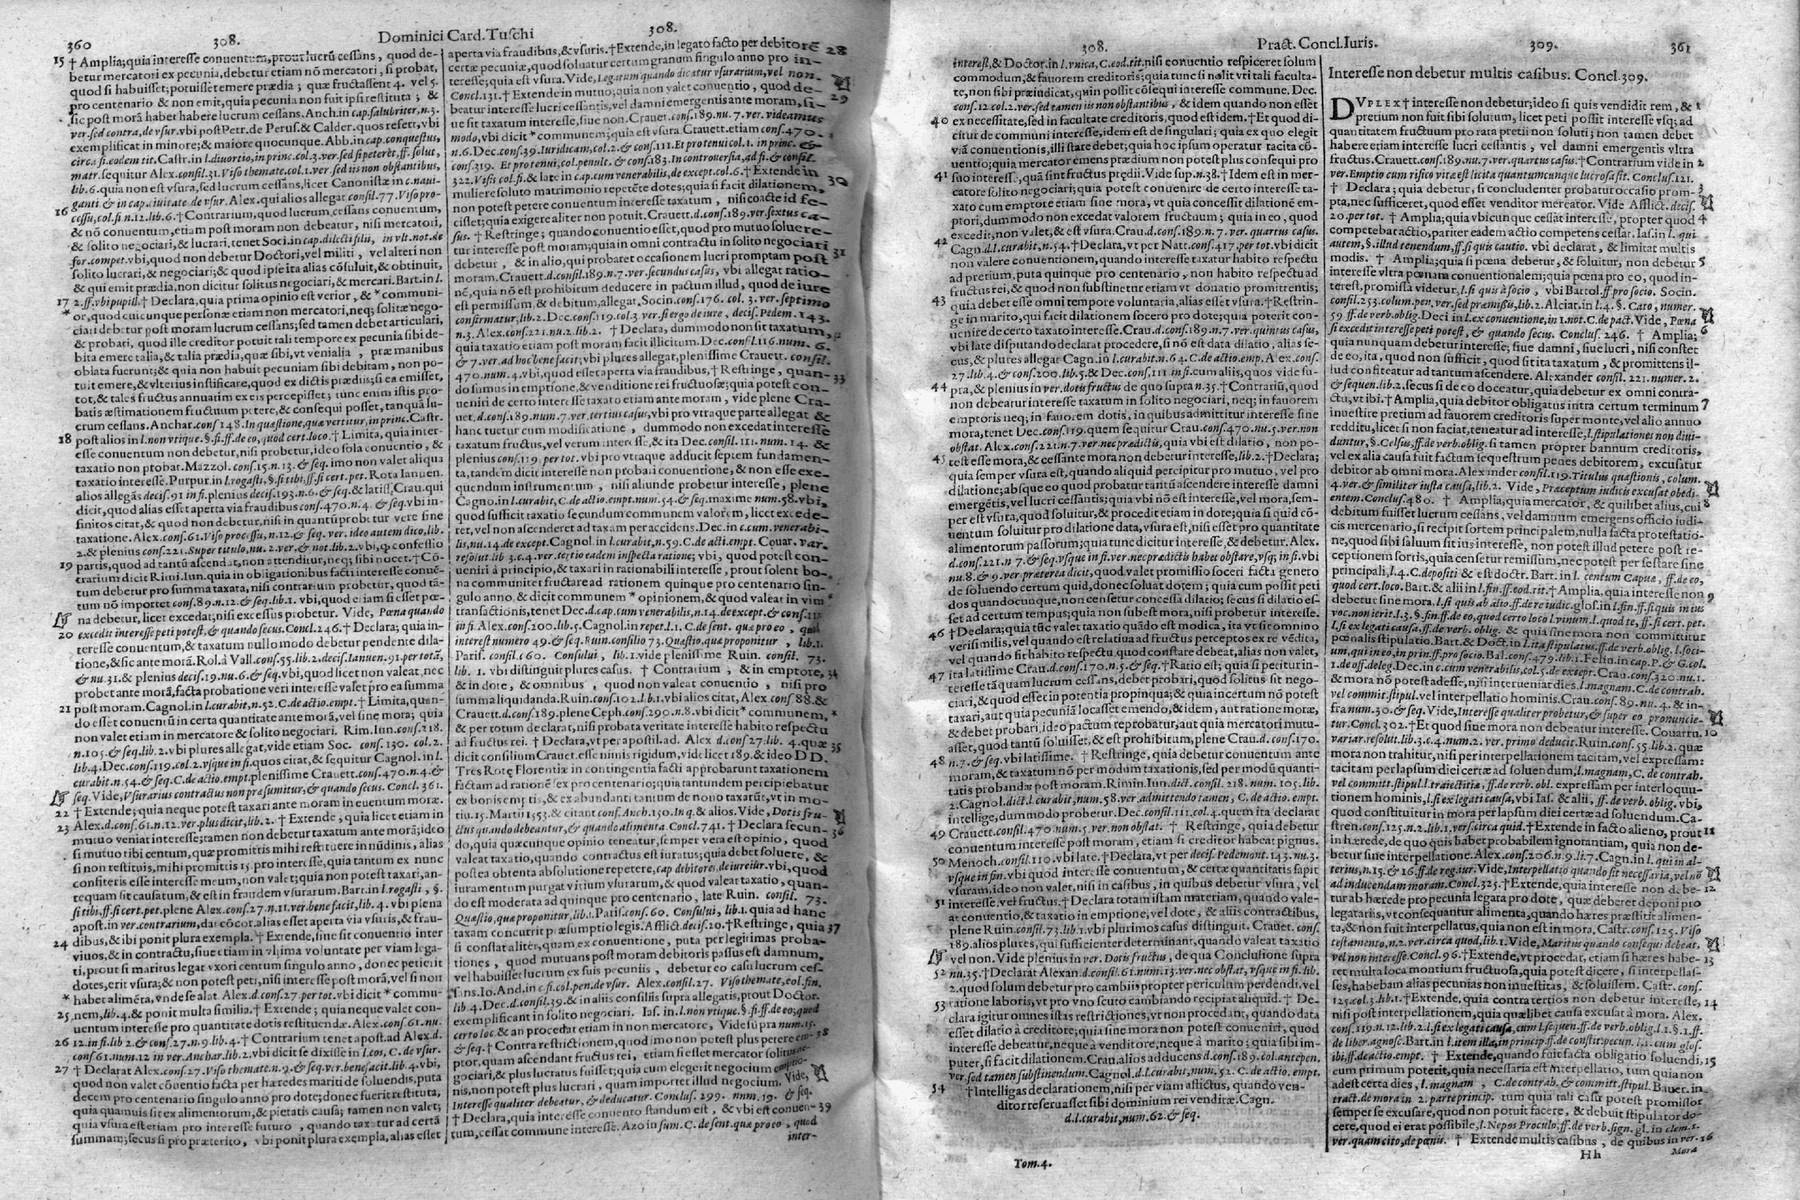 360 308. Dominici Card. Tuschi 308.
15 † Amplia; quia interesse conuentum, prout lucrū cessans, quod de-
betur mercatori ex pecunia, debetur etiam nō mercatori, si probat,
quod si habuisset; potuisset emere prædia; quæ fructassent 4. vel 5.
pro centenario & non emit, quia pecunia non fuit ipsi restituta; &
sic post morā haber habere lucrum cessans. Anch. in cap. salubriter, n. 3.
ver. sed contra, de vsur. vbi post Petr. de Perus. & Calder. quos refert, vbi
exemplificat in minore; & maiore quocunque. Abb. in cap. conquestus,
circa fi. eodem tit. Castr. in l. diuortio, in princ. col. 3. ver. sed si peteret, ff. solut.
matr. sequitur Alex. consil. 31. Viso themate. col. 1. ver. sed iis non obstantibus,
lib. 6. quia non est vsura, sed lucrum cessans, licet Canonistæ in c. naui-
ganti & in cap. ciuitate de vsur. Alex. qui alios allegat cons. 77. Viso pro-
16 cessu, col. fi n. 12. lib. 6. † Contrarium, quod lucrum cessans conuentum,
& nō conuentum, etiam post moram non debeatur, nisi mercatori,
& solito negociari, & lucrari, tenet Soci. in cap. dilecti filii, in vlt. not. de
for. compet. vbi, quod non debetur Doctori, vel militi, vel alteri non
solito lucrari, & negociari; & quod ipse ita alias cōsuluit, & obtinuit,
& qui emit prædia, non dicitur solitus negociari, & mercari. Bart. in l.
17 2. ff. vbi pupill. † Declara, quia prima opinio est verior, & * communi-
* or, quod cuicunque personæ etiam non mercatori, neq; solitæ nego-
ciari debetur post moram lucrum cessans; sed tamen debet articulari,
& probari, quod ille creditor potuit tali tempore ex pecunia sibi de-
bita emere talia, & talia prædia, quæ sibi, vt venialia, præ manibus
oblata fuerunt; & quia non habuit pecuniam sibi debitam, non po-
tuit emere, & vlterius iustificare, quod ex dictis prædiis, si ea emisset,
tot, & tales fructus annuatim ex eis percepisset; tunc enim istis pro-
batis æstimationem fructuum petere, & consequi posset, tanquā lu-
crum cessans. Anchar. cons. 148. In quæstione, quæ vertitur, in princ. Castr.
18 post alios in l. non vtique. §. fi. ff. de eo, quod cert. loco. † Limita, quia inter-
esse conuentum non debetur, nisi probetur, ideo sola conuentio, &
taxatio non probat. Mazzol. cons. 15. n. 13. & seq. imo non valet aliqua
taxatio interesse. Purpur. in l. rogasti. §. si tibi, ff. si cert. pet. Rota Ianuen.
alios allegās decis. 91 in fi. plenius decis. 193. n. 6. & seq. & latiss. Crau. qui
dicit, quod alias esset aperta via fraudibus cons. 470. n. 4. & seq. vbi in-
finitos citat, & quod non debetur, nisi in quantū probetur vere sine
taxatione. Alex. cons. 61. Viso processu, n. 12. & seq. ver. ideo autem dico, lib.
2. & plenius cons. 221. Super titulo, nu. 2. ver. & not. lib. 2. vbi, q̃ confessio
19 partis, quod ad tantū ascendat, non attenditur, neq; sibi nocet. † Cō-
trarium dicit Rimi. Iun. quia in obligationibus facti interesse conuē-
tum debetur pro summa taxata, nisi contrarium probetur, quod tā-
tum nō importet cons. 89. n. 12. & seq. lib. 1. vbi, quod etiam si esset pœ-
na debetur, licet excedat; nisi excessus probetur. Vide, Pœna quando
20 excedit interesse peti potest, & quando secus. Concl. 246. † Declara; quia in-
teresse conuentum, & taxatum nullo modo debetur pendente dila-
tione, & sic ante morā. Rol. à Vall. cons. 55. lib. 2. decis. Ianuen. 91. per totā,
& nu. 31. & plenius decis. 19. nu. 6. & seq. vbi, quod licet non valeat, nec
probet ante morā, facta probatione veri interesse valet pro ea summa
21 post moram. Cagnol. in l. curabit, n. 52. C. de actio. empt. † Limita, quan-
do esset conuentū in certa quantitate ante morā, vel sine mora; quia
non valet etiam in mercatore & solito negociari. Rim. Iun. cons. 218.
n. 105. & seq. lib. 2. vbi plures allegat, vide etiam Soc. cons. 130. col. 2.
lib. 4. Dec. cons. 119. col. 2. vsque in fi. quos citat, & sequitur Cagnol. in l.
curabit n. 54. & seq. C. de actio. empt. plenissime Crauett. cons. 470. n. 4. &
seq. Vide, Vsurarius contractus non præsumitur, & quando secus. Concl. 361.
22 † Extende; quia neque potest taxari ante moram in euentum moræ.
23 Alex. d. cons. 61. n. 12. ver. plus dicit, lib. 2. † Extende, quia licet etiam in
mutuo veniat interesse; tamen non debetur taxatum ante morā; ideo
si mutuo tibi centum, quæ promittis mihi restituere in nūdinis, alias
si non restituis, mihi promittis 15 pro interesse, quia tantum ex nunc
confiteris esse interesse meum, non valet; quia non potest taxari, an-
tequam sit causatum, & est in fraudem vsurarum. Bart. in l. rogasti, §.
si tibi, ff. si cert. pet. plene Alex. cons. 27. n. 11. ver. bene facit, lib. 4. vbi plena
apost. in ver. contrarium, dat cōcor. alias esset aperta via vsuris, & frau-
24 dibus, & ibi ponit plura exempla. † Extende, siue sit conuentio inter
viuos, & in contractu, siue etiam in vltima voluntate per viam lega-
ti, prout si maritus legat vxori centum singulo anno, donec petierit
dotes, erit vsura; & non potest peti, nisi interesse post morā, vel si non
* habet alimēta, vnde se alat. Alex. d. cons. 27 per tot. vbi dicit * commu-
25 nem, lib. 4. & ponit multa similia. † Extende; quia neque valet con-
uentum interesse pro quantitate dotis restituendæ. Alex. cons. 61. nu.
26 12. in fi. lib 2. & cons. 27. n. 9. lib. 4. † Contrarium tenet apost. ad Alex. d.
cons. 61. num. 12 in ver. Anchar. lib. 2. vbi dicit se dixisse in l. eos, C. de vsur.
27 † Declarat Alex. cons. 27. Viso themate. n. 9. & seq. ver. bene facit lib. 4. vbi,
quod non valet cōuentio facta per hæredes mariti de soluendis, puta
decem pro centenario singulo anno pro dote; donec fuerit restituta,
quia quamuis sit ex alimentorum, & pietatis causa; tamen non valet;
quia vsura est etiam pro interesse futuro, quando taxatur ad certā
summam; secus si pro præterito, vbi ponit plura exempla, alias esset
aperta via fraudibus, & vsuris. † Extende, in legato facto per debitorē 28
certæ pecuniæ, quod soluatur certum granum singulo anno pro in-
teresse; quia est vsura. Vide, Legatum quando dicatur vsurarium, vel non.
Concl. 131. † Extende in mutuo; quia non valet conuentio, quod de- 29
beatur interesse lucri cessantis, vel damni emergentis ante moram, si-
ue sit taxatum, siue non. Crauet. cons. 189. nu. 7. ver. videamus
modo, vbi dicit * communem; quia est vsura. Crauett. etiam cons. 470.
n. 6. Dec. cons. 39. Iuridicam, col. 2. & cons. 111. Et pro tenui col. 1. in princ. &
cons. 119. Et pro tenui, col. penult. & cons. 183. In controuersia, ad fi. & consil.
322. Visis col. fi. & late in cap. cum venerabilis, de except. col. 6. † Extende in 30
muliere soluto matrimonio repetēte dotes; quia si facit dilationem,
non potest petere conuentum interesse taxatum, nisi coacte id fe-
cisset; quia exigere aliter non potuit. Crauett. d. cons. 189. ver. sextus ca-
sus. † Restringe; quando conuentio esset, quod pro mutuo soluere-
tur interesse post moram; quia in omni contractu in solito negociari 31
debetur, & in alio, qui probaret occasionem lucri promptam post
moram. Crauett. d. consil. 189. n. 7. ver. secundus casus, vbi allegat ratio-
nē, quia nō est prohibitum deducere in pactum illud, quod de iure
est permissum, & debitum, allegat. Socin. cons. 176. col. 3. ver. septimo
confirmatur, lib. 2. Dec. cons. 119. col. 3. ver. si ergo de iure, decis. Pedem. 143.
n. 3. Alex. cons. 221. nu. 2. lib. 2. † Declara, dummodo non sit taxatum,
quia taxatio etiam post moram facit illicitum. Dec. cons. 116. num. 6.
& 7. ver. ad hoc bene facit, vbi plures allegat, plenissime Crauett. consil.
470. num. 4. vbi, quod esset aperta via fraudibus, † Restringe, quan- 33
do sumus in emptione, & venditione rei fructuosæ; quia potest con-
ueniri de certo interesse taxato etiam ante moram, vide plene Cra-
uet. d. cons. 189. num. 7. ver. tertius casus, vbi pro vtraque parte allegat &
hanc tuetur cum modificatione, dummodo non excedat interesse
taxatum fructus, vel verum interesse, & ita Dec. consil. 111. num. 14. &
plenius cons. 119. per tot. vbi pro vtraque adducit septem fundamen-
ta, tandem dicit interesse non probari conuentione, & non esse exe-
quendum instrumentum, nisi aliunde probetur interesse, plene
Cagno. in l. curabit, C. de actio empt. num. 54. & seq. maxime num. 58. vbi,
quod sufficit taxatio secundum communem valorem, licet excede-
ret, vel non ascenderet ad taxam per accidens. Dec. in c. cum. venerabi-
lis, nu. 14. de except. Cagnol. in l. curabit, n. 59. C. de acti. empt. Couar. var.
resolut. lib. 3. c. 4. ver. tertio eadem inspecta ratione; vbi, quod potest con-
ueniri à principio, & taxari in rationabili interesse, prout solent bo-
na communiter fructare ad rationem quinque pro centenario sin-
gulo anno, & dicit communem * opinionem, & quod valeat in vim *
transactionis, tenet Dec. d. cap. cum venerabilis, n. 14. de except. & cons. 111
in fi. Alex. cons. 200. lib. 5. Cagnol. in repet. l. 1. C. de sent. quæ pro eo, quod
interest numero 49. & seq. Ruin. consilio 73. Quæstio quæ proponitur, lib. 1.
Paris. consil. 60. Consului, lib. 1. vide plenissime Ruin. consil. 73.
lib. 1. vbi distinguit plures casus. † Contrarium, & in emptore, 34
& in dote, & omnibus, quod non valeat conuentio, nisi pro
summa liquidanda. Ruin. cons. 102. lib. 1. vbi alios citat, Alex. cons. 88. &
Crauett. d. cons. 189. plene Ceph. cons. 290. n. 8. vbi dicit * communem, *
& per totum declarat, nisi probata veritate interesse habito respectu
ad fructus rei. † Declara, vt per apostil. ad. Alex d. cons. 27. lib. 4. quæ 35
dicit consilium Crauet. esse nimis rigidum, videlicet 189. & ideo DD.
Tres Rotę Florentiæ in contingentia facti approbarunt taxationem
factam ad rationē sex pro centenario; quia tantundem percipiebatur
ex bonis emptis, & ex abundanti tantum de nouo taxatū, vt in mo-
tiu. 15. Martii 1553. & citant cons. Anch. 130. In q. & alios. Vide, Dotis fru-
ctus quando debeantur, & quando alimenta. Concl. 741. † Declara secun- 36
do, quia quæcunque opinio teneatur, semper vera est opinio, quod
valeat taxatio, quando contractus est iuratus; quia debet soluere, &
postea obtenta absolutione repetere, cap. debitores, de iureiur. vbi, quod
iuramentum purgat vitium vsurarum, & quod valeat taxatio, quan-
do est moderata ad quinque pro centenario, late Ruin. consil. 73.
Quæstio, quæ proponitur, lib. 1. Paris. cons. 60. Consului, lib. 1. quia ad hanc
taxam concurrit præsumptio legis. Afflict. decis. 10. † Restringe, quia 37
si constat aliter, quam ex conuentione, puta per legitimas proba-
tiones, quod mutuans post moram debitoris passus est damnum,
vel habuisset lucrum ex suis pecuniis, debetur eo casu lucrum ces-
sans. Io. And. in c. fi. col. pen. de vsur. Alex. consil. 27. Viso themate, col. fin.
lib. 4. Dec. d. consil. 39. & in aliis consiliis supra allegatis, prout Doctor.
exemplificant in solito negociari. Ias. in l. non vtique. §. fi. ff. de eo; quod
certo loco. & an procedat etiam in non mercatore, Vide supra num. 15.
& seq. † Contra restrictionem, quod imo non potest plus petere em- 38
ptor, quam ascendant fructus rei, etiam si esset mercator solitus ne-
gociari, & plus lucratus fuisset; quia cum elegerit negocium
nis, non potest plus lucrari, quam importet illud negocium. Vide,
Interesse qualiter debeatur, & deducatur. Conclus. 299. num. 19. & seq.
† Declara, quia interesse conuento standum est, & vbi est conuen- 39
tum, cessat commune interesse. Azo in sum. C. de sent. quæ pro eo, quod
inter-
308. Pract. Concl. Iuris. 309. 361
interest, & Doctor. in l. vnica, C. eod. tit. nisi conuentio respiceret solum
commodum, & fauorem creditoris; quia tunc si nolit vti tali faculta-
te, non sibi præiudicat, quin possit cōsequi interesse commune. Dec.
cons. 12. col. 2. ver. sed tamen iis non obstantibus, & idem quando non esset
40 ex necessitate, sed in facultate creditoris, quod est idem. † Et quod di-
citur de communi interesse, idem est de singulari; quia ex quo elegit
viā conuentionis, illi stare debet; quia hoc ipsum operatur tacita cō-
uentio; quia mercator emens prædium non potest plus consequi pro
41 suo interesse, quā sint fructus prędii. Vide sup. n. 38. † Idem est in mer-
catore solito negociari; quia potest conuenire de certo interesse ta-
xato cum emptore etiam sine mora, vt quia concessit dilationē em-
ptori, dummodo non excedat valorem fructuum; quia in eo, quod
excedit, non valet, & est vsura. Crau. d. cons. 189. n. 7. ver. quartus casus.
42 Cagn. d. l. curabit, n. 54. † Declara, vt per Natt. cons. 417. per tot. vbi dicit
non valere conuentionem, quando interesse taxatur habito respectu
ad pretium, puta quinque pro centenario, non habito respectu ad
fructus rei, & quod non substinetur etiam vt donatio promittentis;
43 quia debet esse omni tempore voluntaria, alias esset vsura. † Restrin-
ge in marito, qui facit dilationem socero pro dote; quia poterit con-
uenire de certo taxato interesse. Crau. d. cons. 189. n. 7. ver. quintus casus,
vbi late disputando declarat procedere, si nō est data dilatio, alias se-
cus, & plures allegat Cagn. in l. curabit. n. 64. C. de actio. emp. Alex. cons.
27. lib. 4. & cons. 200. lib. 5. & Dec. cons. 111 in fi. cum aliis, quos vide su-
44 pra, & plenius in ver. dotis fructus de quo supra n. 35. † Contrariū, quod
non debeatur interesse taxatum in solito negociari, neq; in fauorem
emptoris neq; in fauorem dotis, in quibus admittitur interesse sine
mora, tenet Dec. cons. 119. quem sequitur Crau. cons. 470. nu. 5. ver. non
obstat. Alex. cons. 221. n. 7. ver. nec prædictis, quia vbi est dilatio, non po-
45 test esse mora, & cessante mora non debetur interesse, lib. 2. † Declara;
quia semper vsura est, quando aliquid percipitur pro mutuo, vel pro
dilatione; absque eo quod probatur tantū ascendere interesse damni
emergētis, vel lucri cessantis; quia vbi nō est interesse, vel mora, sem-
per est vsura, quod soluitur, & procedit etiam in dote; quia si quid cō-
uentum soluitur pro dilatione data, vsura est, nisi esset pro quantitate
alimentorum passorum; quia tunc dicitur interesse, & debetur. Alex.
d. cons. 221 n. 7. & seq. vsque in fi. ver. nec prædictis habet obstare, vsq; in fi. vbi
nu. 8. & 9. ver. præterea dicit, quod valet promissio soceri facta genero
de soluendo certum quid, donec soluat dotem; quia cum possit peti
dos quandocunque, non censetur concessa dilatio; secus si dilatio es-
set ad certum tempus; quia non subest mora, nisi probetur interesse.
46 † Declara; quia tūc valet taxatio quādo est modica, ita vt sit omnino
verisimilis, vel quando est relatiua ad fructus perceptos ex re vēdita,
vel quando sit habito respectu, quod constare debeat, alias non valet,
47 vt late Crau. d. cons. 170. n. 5. & seq. † Ratio est; quia si petitur in-
teresse tāquam lucrum cessans, debet probari, quod solitus sit nego-
ciari, & quod esset in potentia propinqua; & quia incertum nō potest
taxari, aut quia pecuniā locasset emendo, & idem, aut ratione moræ,
& debet probari, ideo pactum reprobatur, aut quia mercatori mutu-
asset, aut quod tantū soluisset, & est prohibitum, plene Crau. d. cons. 170.
48 n. 7. & seq. vbi latissime. † Restringe, quia debetur conuentum ante
moram, & taxatum nō per modum taxationis, sed per modū quanti-
tatis probandæ post moram. Rimin. Iun. dict. consil. 218. num. 105. lib.
2. Cagnol. dict. l. curabit, num. 58. ver. admittendo tamen, C. de actio. empt.
intellige, dummodo probetur. Dec. cons. 111. quem ita declarat
49 Crauett. consil. 470. num. 5. ver. non obstat. † Restringe, quia debetur
conuentum interesse post moram, etiam si creditor habeat pignus.
50 Menoch. consil. 110. vbi late. † Declara, vt per decis. Pedemont. 143. nu. 3.
vsque in fin. vbi quod interesse conuentum, & certæ quantitatis sapit
vsuram, ideo non valet, nisi in casibus, in quibus debetur vsura, vel
51 interesse, vel fructus. † Declara totam istam materiam, quando vale-
at conuentio, & taxatio in emptione, vel dote, & aliis contractibus,
plene Ruin. cons. 73. lib. 1. vbi plurimos casus distinguit. Crauet. cons.
189. alios plures, qui sufficienter determinant, quando valeat taxatio
vel non. Vide plenius in ver. Dotis fructus, de qua Conclusione supra
52 nu. 35. † Declarat Alexan. d. consil. 61. num. 13. ver. nec obstat, vsque in fi. lib.
2. quod solum debetur pro cambiis propter periculum perdendi, vel
ratione laboris, vt pro vno scuto cambiando recipiat aliquid. † De-
53 clara igitur omnes istas restrictiones, vt non procedant, quando data
esset dilatio à creditore; quia sine mora non potest conueniri, quod
interesse debeatur, neque à venditore, neque à marito; quia sibi im-
puter, si facit dilationem. Crau. alios adducens d. cons. 189. col. antepen.
ver. sed tamen substinendum. Cagnol. d. l. curabit, num. 52. C. de actio. empt.
54 † Intelligas declarationem, nisi per viam astictus, quando ven-
ditor reseruasset sibi dominium rei venditæ. Cagn.
d. l. curabit, num. 62. & seq.
Tom. 4.
Interesse non debetur multis casibus. Concl. 309.
DVPLEX † interesse non debetur; ideo si quis vendidit rem, & 1
pretium non fuit sibi solutum, licet peti possit interesse vsq; ad
quantitatem fructuum pro rata pretii non soluti; non tamen debet
habere etiam interesse lucri cessantis, vel damni emergentis vltra
fructus. Crauett. cons. 189. nu. 7. ver. quartus casus. † Contrarium vide in 2
ver. Emptio cum rifico vitæ est licita quantumcunque lucrosa sit. Conclus. 121.
† Declara; quia debetur, si concludenter probatur occasio prom- 3
pta, nec sufficeret, quod esset venditor mercator. Vide Afflict. decis.
20. per tot. † Amplia; quia vbicunque cessat interesse, propter quod 4
competebat actio, pariter eadem actio competens cessat. Ias. in l. qui
autem, §. illud tenendum, ff. si quis cautio. vbi declarat, & limitat multis
modis. † Amplia; quia si pœna debetur, & soluitur, non debetur 5
interesse vltra pœnam conuentionalem; quia pœna pro eo, quod in-
terest, promissa videtur, l. si quis à socio, vbi Bartol. ff. pro socio. Socin.
consil. 253. colum. pen. ver. sed præmissis, lib. 2. Alciat. in l. 4. §. Cato, numer.
59 ff. de verb. oblig. Deci in l. ex conuentione, in 1. not. C. de pact. Vide, Pœna
si excedit interesse peti potest, & quando secus. Conclus. 246. † Amplia; 6
quia nunquam debetur interesse, siue damni, siue lucri, nisi constet
de eo, ita, quod non sufficit, quod sit ita taxatum, & promittens il-
lud confiteatur ad tantum ascendere. Alexander consil. 221. numer. 2.
& sequen. lib. 2. secus si de eo doceatur, quia debetur ex omni contra-
ctu, vt ibi. † Amplia, quia debitor obligatus intra certum terminum 7
inuestire pretium ad fauorem creditoris super monte, vel alio annuo
redditu, licet si non faciat, teneatur ad interesse, l. stipulationes non diui-
duntur, §. Celsus, ff. de verb. oblig. si tamen propter bannum creditoris,
vel ex alia causa fuit factum sequestrum penes debitorem, excusatur
debitor ab omni mora. Alexander consil. 119. Titulus quæstionis, colum.
4. ver. & similiter iusta causa, lib. 2. Vide, Præceptum iudicis excusat obedi-
entem. Conclus. 480. † Amplia, quia mercator, & quilibet alius, cui 8
debitum fuisset lucrum cessans, vel damnum emergens officio iudi-
cis mercenario, si recipit sortem principalem, nulla facta protestatio-
ne, quod sibi saluum sit ius interesse, non potest illud petere post re-
ceptionem sortis, quia censetur remissum, nec potest per se stare sine
principali, l. 4. C. depositi & est doctr. Bart. in l. centum Capua, ff. de eo,
quod cert. loco. Bart. & alii in l. fin. ff. eod. tit. † Amplia, quia interesse non 9
debetur sine mora. l. si quis ab alio. ff. de re iudic. glos. in l. fin. ff. si quis in ius
voc. non ierit. l. 3. §. fin. ff. de eo, quod certo loco l. vinum. l. quod te, ff. si cert. pet.
l. si ex legati causa, ff. de verb. oblig. & quia sine mora non committitur
pœnalis stipulatio. Bart. & Doct. in l. ita stipulatus. ff. de verb. oblig. l. soci-
um, qui in eo, in prin. ff. pro socio. Bal. cons. 479. lib. 1. Felin. in cap. P. & G. col.
1. de off. deleg. Dec. in c. cum venerabilis, col. 5. de except. Crau. cons. 320. nu. 1.
& mora nō potest adesse, nisi interueniat dies. l. magnam. C. de contrah.
vel commit. stipul. vel interpellatio hominis. Crau. cons. 89. nu. 4. & in-
fra num. 30. & seq. Vide, Interesse qualiter probetur, & super eo pronuncie-
tur. Concl. 302. † Et quod siue mora non debetur interesse. Couarru. 10
variar. resolut. lib. 3. c. 4. num. 2. ver. primo deducit. Ruin. cons. 55. lib. 2. quæ
mora non trahitur, nisi per interpellationem tacitam, vel expressam:
tacitam per lapsum diei certæ ad soluendum, l. magnam, C. de contrah.
vel committ. stipul. l. traiectitia, ff. de verb. obl. expressam per interloquu-
tionem hominis, l. si ex legati causa, vbi Ias. & alii, ff. de verb. oblig. vbi,
quod constituitur in mora per lapsum diei certæ ad soluendum. Ca-
stren. cons. 125. n. 2. lib. 1. vers. circa quid. † Extende in facto alieno, prout 11
in hærede, de quo quis habet probabilem ignorantiam, quia non de-
betur sine interpellatione. Alex. cons. 206. n. 9. li. 7. Cagn. in l. qui in al-
terius, n. 15. & 16. ff. de reg. iur. Vide, Interpellatio quando sit necessaria, vel nō
ad inducendam moram. Concl. 325. † Extende, quia interesse non de- 12
betur ab hærede pro pecunia legata pro dote, quæ deberet deponi pro
legatariis, vt consequantur alimenta, quando hæres præstitit alimen-
ta, & non fuit interpellatus, quia non est in mora. Castr. cons. 125. Viso
testamento, n. 2. ver. circa quod, lib. 1. Vide, Maritus quando consequi debeat,
vel non interesse. Concl. 96. † Extende, vt procedat, etiam si hæres habe- 13
ret multa loca montium fructuosa, quia potest dicere, si interpellas-
ses, habebam alias pecunias non inuestitas, & soluissem. Castr. cons.
125. col. 3. lib. 1. † Extende, quia contra tertios non debetur interesse, 14
nisi post interpellationem, quia quælibet causa excusat à mora. Alex.
cons. 119. n. 12. lib. 2. l. si ex legati causa, cum l. sequen. de verb. oblig. l. 2. §. 1. ff.
de liber. agnosc. Bart. in l. item illa, in princip. ff. de constit. pecun. l. 1. cum glos.
ibi, ff. de actio. empt. † Extende, quando fuit facta obligatio soluendi, 15
cum primum poterit, quia necessaria est interpellatio, tum quia non
adest certa dies, l. magnam, C. de contrah. & committ. stipul. Bauer. in
tract. de mora in 2. parte princip. tum quia tali casu potest promissor
semper se excusare, quod non potuit facere, & debuit stipulator do-
cere, quod ei erat possibile, l. Nepos Proculo, ff. de verb. sign. gl. in clem. 1.
ver. quam cito, de pœnis. † Extende multis casibus, de quibus in ver. 16
Hh Mora